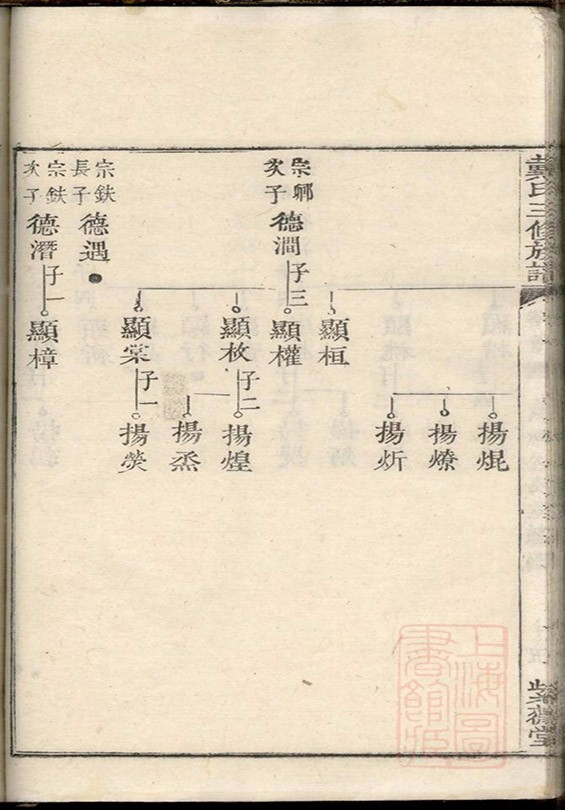 戴氏三修族譜
揚焜
揚燎
揚炘
顯桓
宗鄊次子德澗子三
顯權
顯枚子二
揚煌
揚烝
顯棠子一
揚熒
宗鈇長子德遇
宗鈇次子德潛子一
顯樟
上海圖書館藏